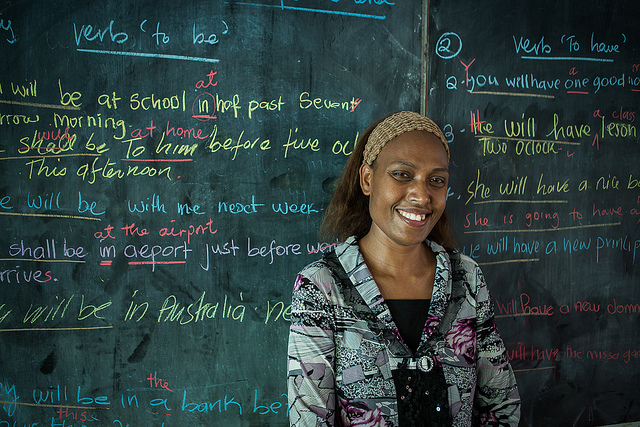 verb 'to be'
will be at school at in haf past Seventy
rrow morning.
shall be at home To him before five oc
This afternoon.
e will be with me next week.
at the airport
shall be in aeport just before
rrives.
will be in Australia
the
y will be in a bank be
this
② Verb 'To have'
you will have a one good
3. He will have a class leson,
Two oclock.
she will have a nice b
She is going to have a
e will have a new princip
will have a new dom
will have the